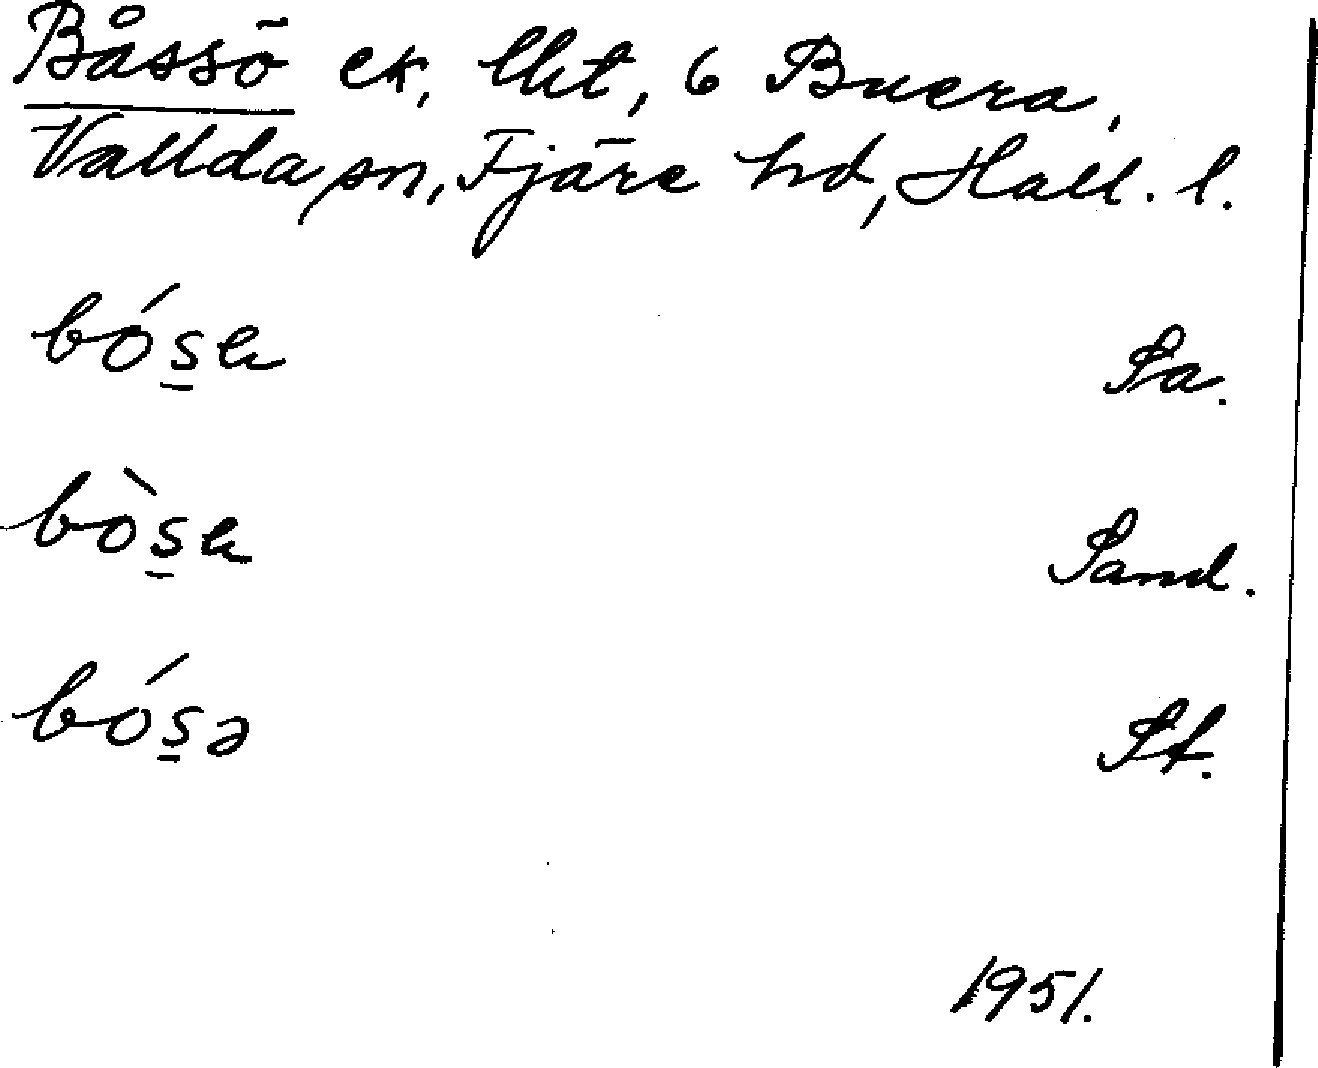 Båssö ek, lht, 6 Buera,
Vallda sn, Fjäre hd, Hall. l.
bós̲ɐ Sa.
bòs̲ɐ Sand.
bós̲ə St.
1951.